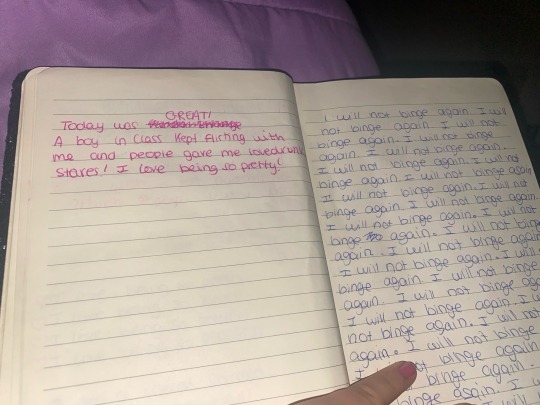 GREAT!
Today was
A boy in class kept flirting with
me and people gave me
stares! I love being so pretty!
I will not binge again. I will
not binge again. I will not
binge again. I will not binge
again. I will not binge again.
I will not binge again. I will not
binge again. I will not binge again.
I will not binge again. I will not
binge again. I will not binge again.
I will not binge again. I will not
binge again. I will not binge
again. I will not binge again.
I will not binge again. I will not
binge again. I will not binge
again. I will not binge again.
I will not binge again. I will
not binge again. I will not
again. I will not binge again.
I not binge again.
binge again.
again. I will